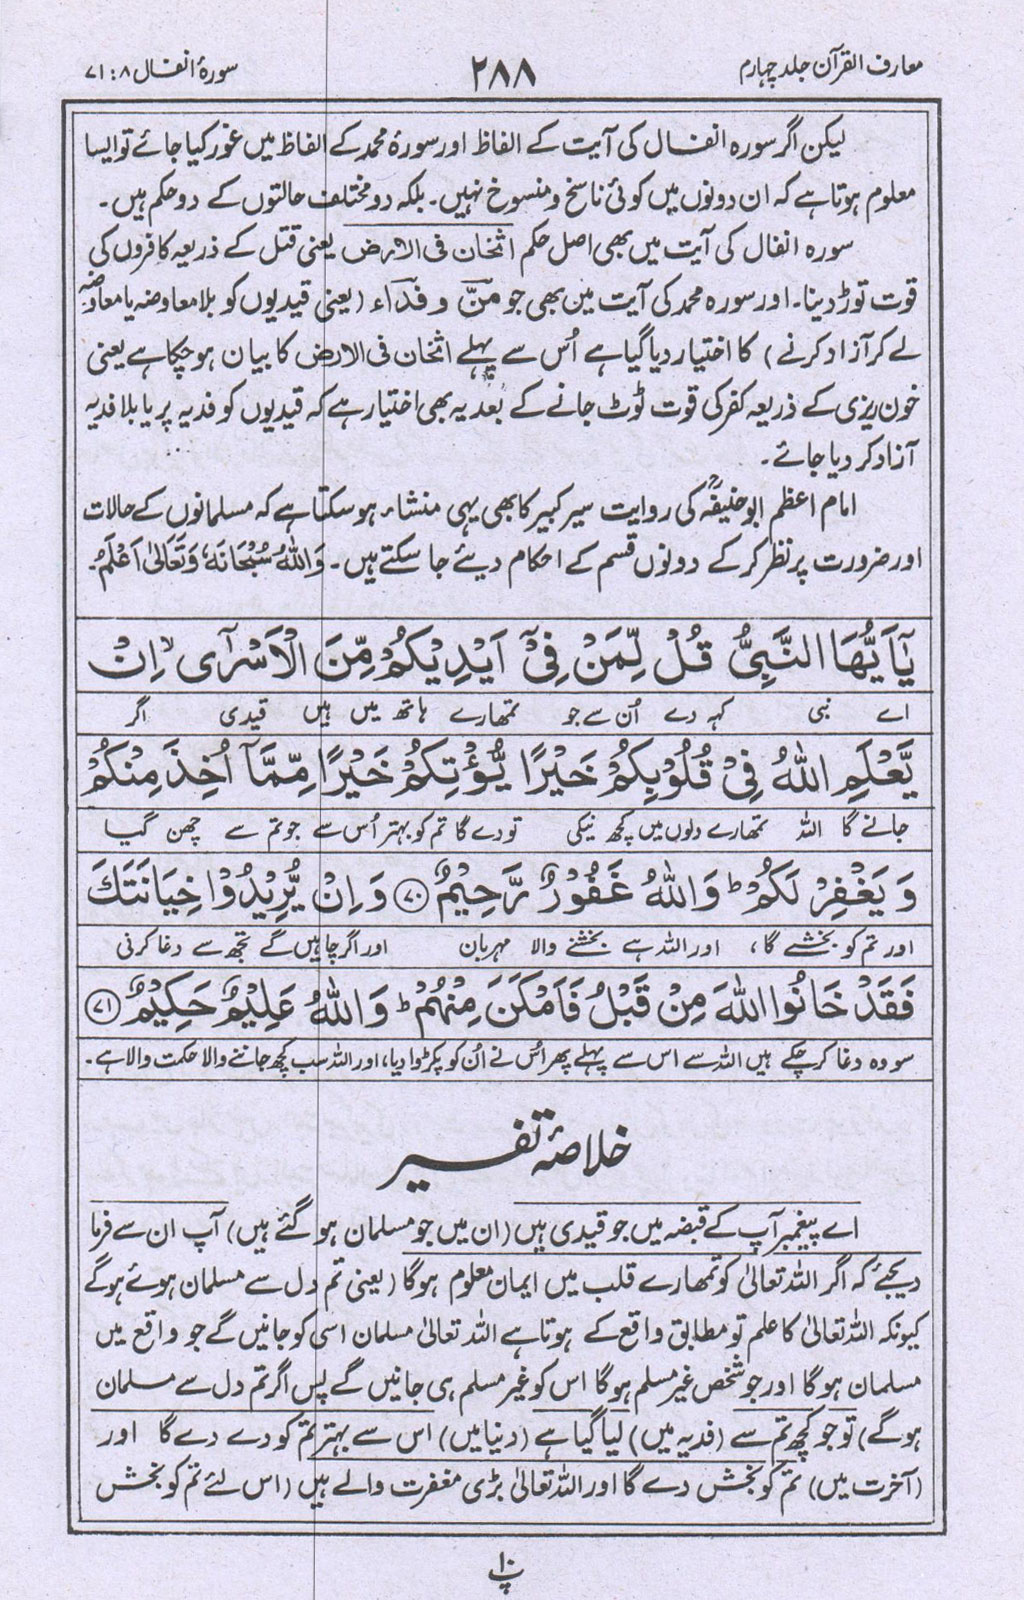 معارف القرآن جلد چہارم
۲۸۸
سورۂ انفال ۸ : ۷۱
لیکن اگر سورہ انفال کی آیت کے الفاظ اور سورۂ محمد کے الفاظ میں غور کیا جائے تو ایسا
معلوم ہوتا ہے کہ ان دونوں میں کوئی ناسخ و منسوخ نہیں۔ بلکہ دو مختلف حالتوں کے دو حکم ہیں۔
سورہ انفال کی آیت میں بھی اصل حکم اثخان فی الارض یعنی قتل کے ذریعہ کافروں کی
قوت توڑ دینا۔ اور سورہ محمد کی آیت میں بھی جو منّ و فداء (یعنی قیدیوں کو بلا معاوضہ یا معاوضہ
لے کر آزاد کرنے) کا اختیار دیا گیا ہے اُس سے پہلے اثخان فی الارض کا بیان ہو چکا ہے یعنی
خون ریزی کے ذریعہ کفر کی قوت ٹوٹ جانے کے بعد یہ بھی اختیار ہے کہ قیدیوں کو فدیہ پر یا بلا فدیہ
آزاد کر دیا جائے۔
امام اعظم ابو حنیفہؒ کی روایت سیر کبیر کا بھی یہی منشاء ہو سکتا ہے کہ مسلمانوں کے حالات
اور ضرورت پر نظر کر کے دونوں قسم کے احکام دیئے جا سکتے ہیں۔ وَاللہُ سُبْحَانَہٗ وَتَعَالیٰ اَعْلَمُ۔
یٰۤاَیُّهَا النَّبِیُّ قُلْ لِّمَنْ فِیْۤ اَیْدِیْكُمْ مِّنَ الْاَسْرٰۤی ۙ اِنْ
اے نبی کہہ دے اُن سے جو تمھارے ہاتھ میں ہیں قیدی اگر
یَّعْلَمِ اللّٰهُ فِیْ قُلُوْبِكُمْ خَیْرًا یُّؤْتِكُمْ خَیْرًا مِّمَّاۤ اُخِذَ مِنْكُمْ
جانے گا اللہ تمھارے دلوں میں کچھ نیکی تو دے گا تم کو بہتر اُس سے جو تم سے چھن گیا
وَ یَغْفِرْ لَكُمْ ؕ وَاللّٰهُ غَفُوْرٌ رَّحِیْمٌ ﴿۷۰﴾ وَ اِنْ یُّرِیْدُوْا خِیَانَتَكَ
اور تم کو بخشے گا، اور اللہ ہے بخشنے والا مہربان اور اگر چاہیں گے تجھ سے دغا کرنی
فَقَدْ خَانُوا اللّٰهَ مِنْ قَبْلُ فَاَمْكَنَ مِنْهُمْ ؕ وَاللّٰهُ عَلِیْمٌ حَكِیْمٌ ﴿۷۱﴾
سو وہ دغا کر چکے ہیں اللہ سے اس سے پہلے پھر اُس نے اُن کو پکڑوا دیا، اور اللہ سب کچھ جاننے والا حکمت والا ہے۔
خلاصۂ تفسیر
اے پیغمبر آپ کے قبضہ میں جو قیدی ہیں (ان میں جو مسلمان ہو گئے ہیں) آپ ان سے فرما
دیجئے کہ اگر اللہ تعالیٰ کو تمھارے قلب میں ایمان معلوم ہوگا (یعنی تم دل سے مسلمان ہوئے ہوگے
کیونکہ اللہ تعالیٰ کا علم تو مطابق واقع کے ہوتا ہے اللہ تعالیٰ مسلمان اسی کو جانیں گے جو واقع میں
مسلمان ہوگا اور جو شخص غیر مسلم ہوگا اس کو غیر مسلم ہی جانیں گے پس اگر تم دل سے مسلمان
ہوگے) تو جو کچھ تم سے (فدیہ میں) لیا گیا ہے (دنیا میں) اس سے بہتر تم کو دے دے گا اور
(آخرت میں) تم کو بخش دے گا اور اللہ تعالیٰ بڑی مغفرت والے ہیں (اس لئے تم کو بخش
پ۱۰